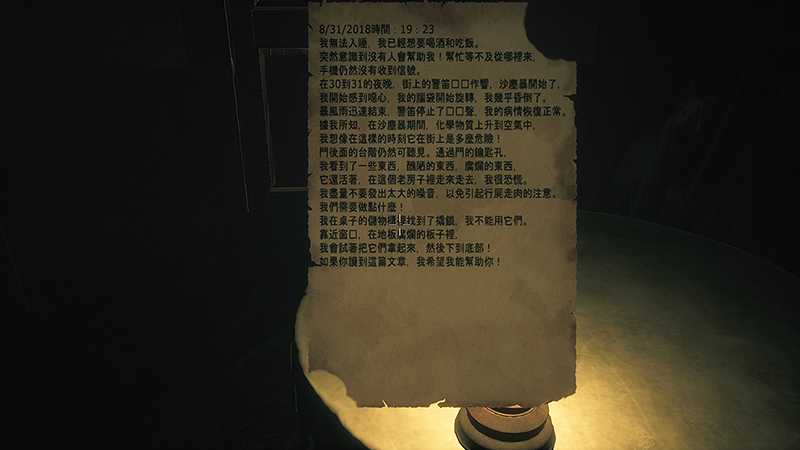 8/31/2018時間：19：23
我無法入睡，我已經想要喝酒和吃飯。
突然意識到沒有人會幫助我！幫忙等不及從哪裡來，
手機仍然沒有收到信號。
在30到31的夜晚，街上的警笛□□作響，沙塵暴開始了，
我開始感到噁心，我的腦袋開始旋轉，我幾乎昏倒了。
暴風雨迅速結束，警笛停止了□□聲，我的病情恢復正常。
據我所知，在沙塵暴期間，化學物質上升到空氣中，
我想像在這樣的時刻它在街上是多麼危險！
門後面的台階仍然可聽見。通過門的鑰匙孔，
我看到了一些東西，醜陋的東西，腐爛的東西，
它還活著，在這個老房子裡走來走去，我很恐慌。
我盡量不要發出太大的噪音，以免引起行屍走肉的注意。
我們需要做點什麼！
我在桌子的儲物櫃裡找到了撬鎖，我不能用它們。
靠近窗口，在地板腐爛的板子裡，
我會試著把它們拿起來，然後下到底部！
如果你讀到這篇文章，我希望我能幫助你！